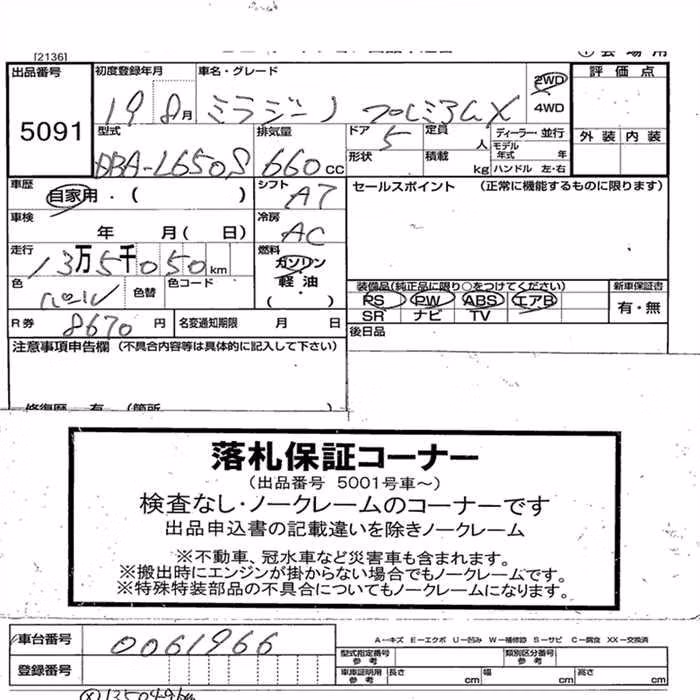 [2136]
出品番号 初度登録年月 車名・グレード 2WD 4WD 評価点
5091 19 8月 ミラジーノ プレミアムX
外装 内装
型式 排気量 ドア 定員 人 ディーラー・並行
DBA-L650S 660cc 5 形状 積載 kg モデル年式 年 ハンドル 左・右
車歴 自家用・( ) シフト AT セールスポイント (正常に機能するものに限ります)
車検 年 月( 日) 冷房 AC
走行 13万5千050km 燃料 ガソリン 軽油 (・)
色 パール 色替 色コード
装備品(純正品に限り○をつけてください) 新車保証書
PS PW ABS エアB 有・無
SR ナビ TV
R券 8670円 名変通知期限 月 日 後日品
注意事項申告欄 (不具合内容等は具体的に記入して下さい)
修復歴 有 (箇所 )
落札保証コーナー
(出品番号 5001号車~)
検査なし・ノークレームのコーナーです
出品申込書の記載違いを除きノークレーム
※不動車、冠水車など災害車も含まれます。
※搬出時にエンジンが掛からない場合でもノークレームです。
※特殊特装部品の不具合についてもノークレームになります。
車台番号 0061966
A-キズ E-エクボ U-凹み W-補修跡 S-サビ C-腐食 XX-交換済
型式指定番号 参考 類別区分番号 参考
登録番号 車庫証明用 参考 長さ cm 幅 cm 高さ cm